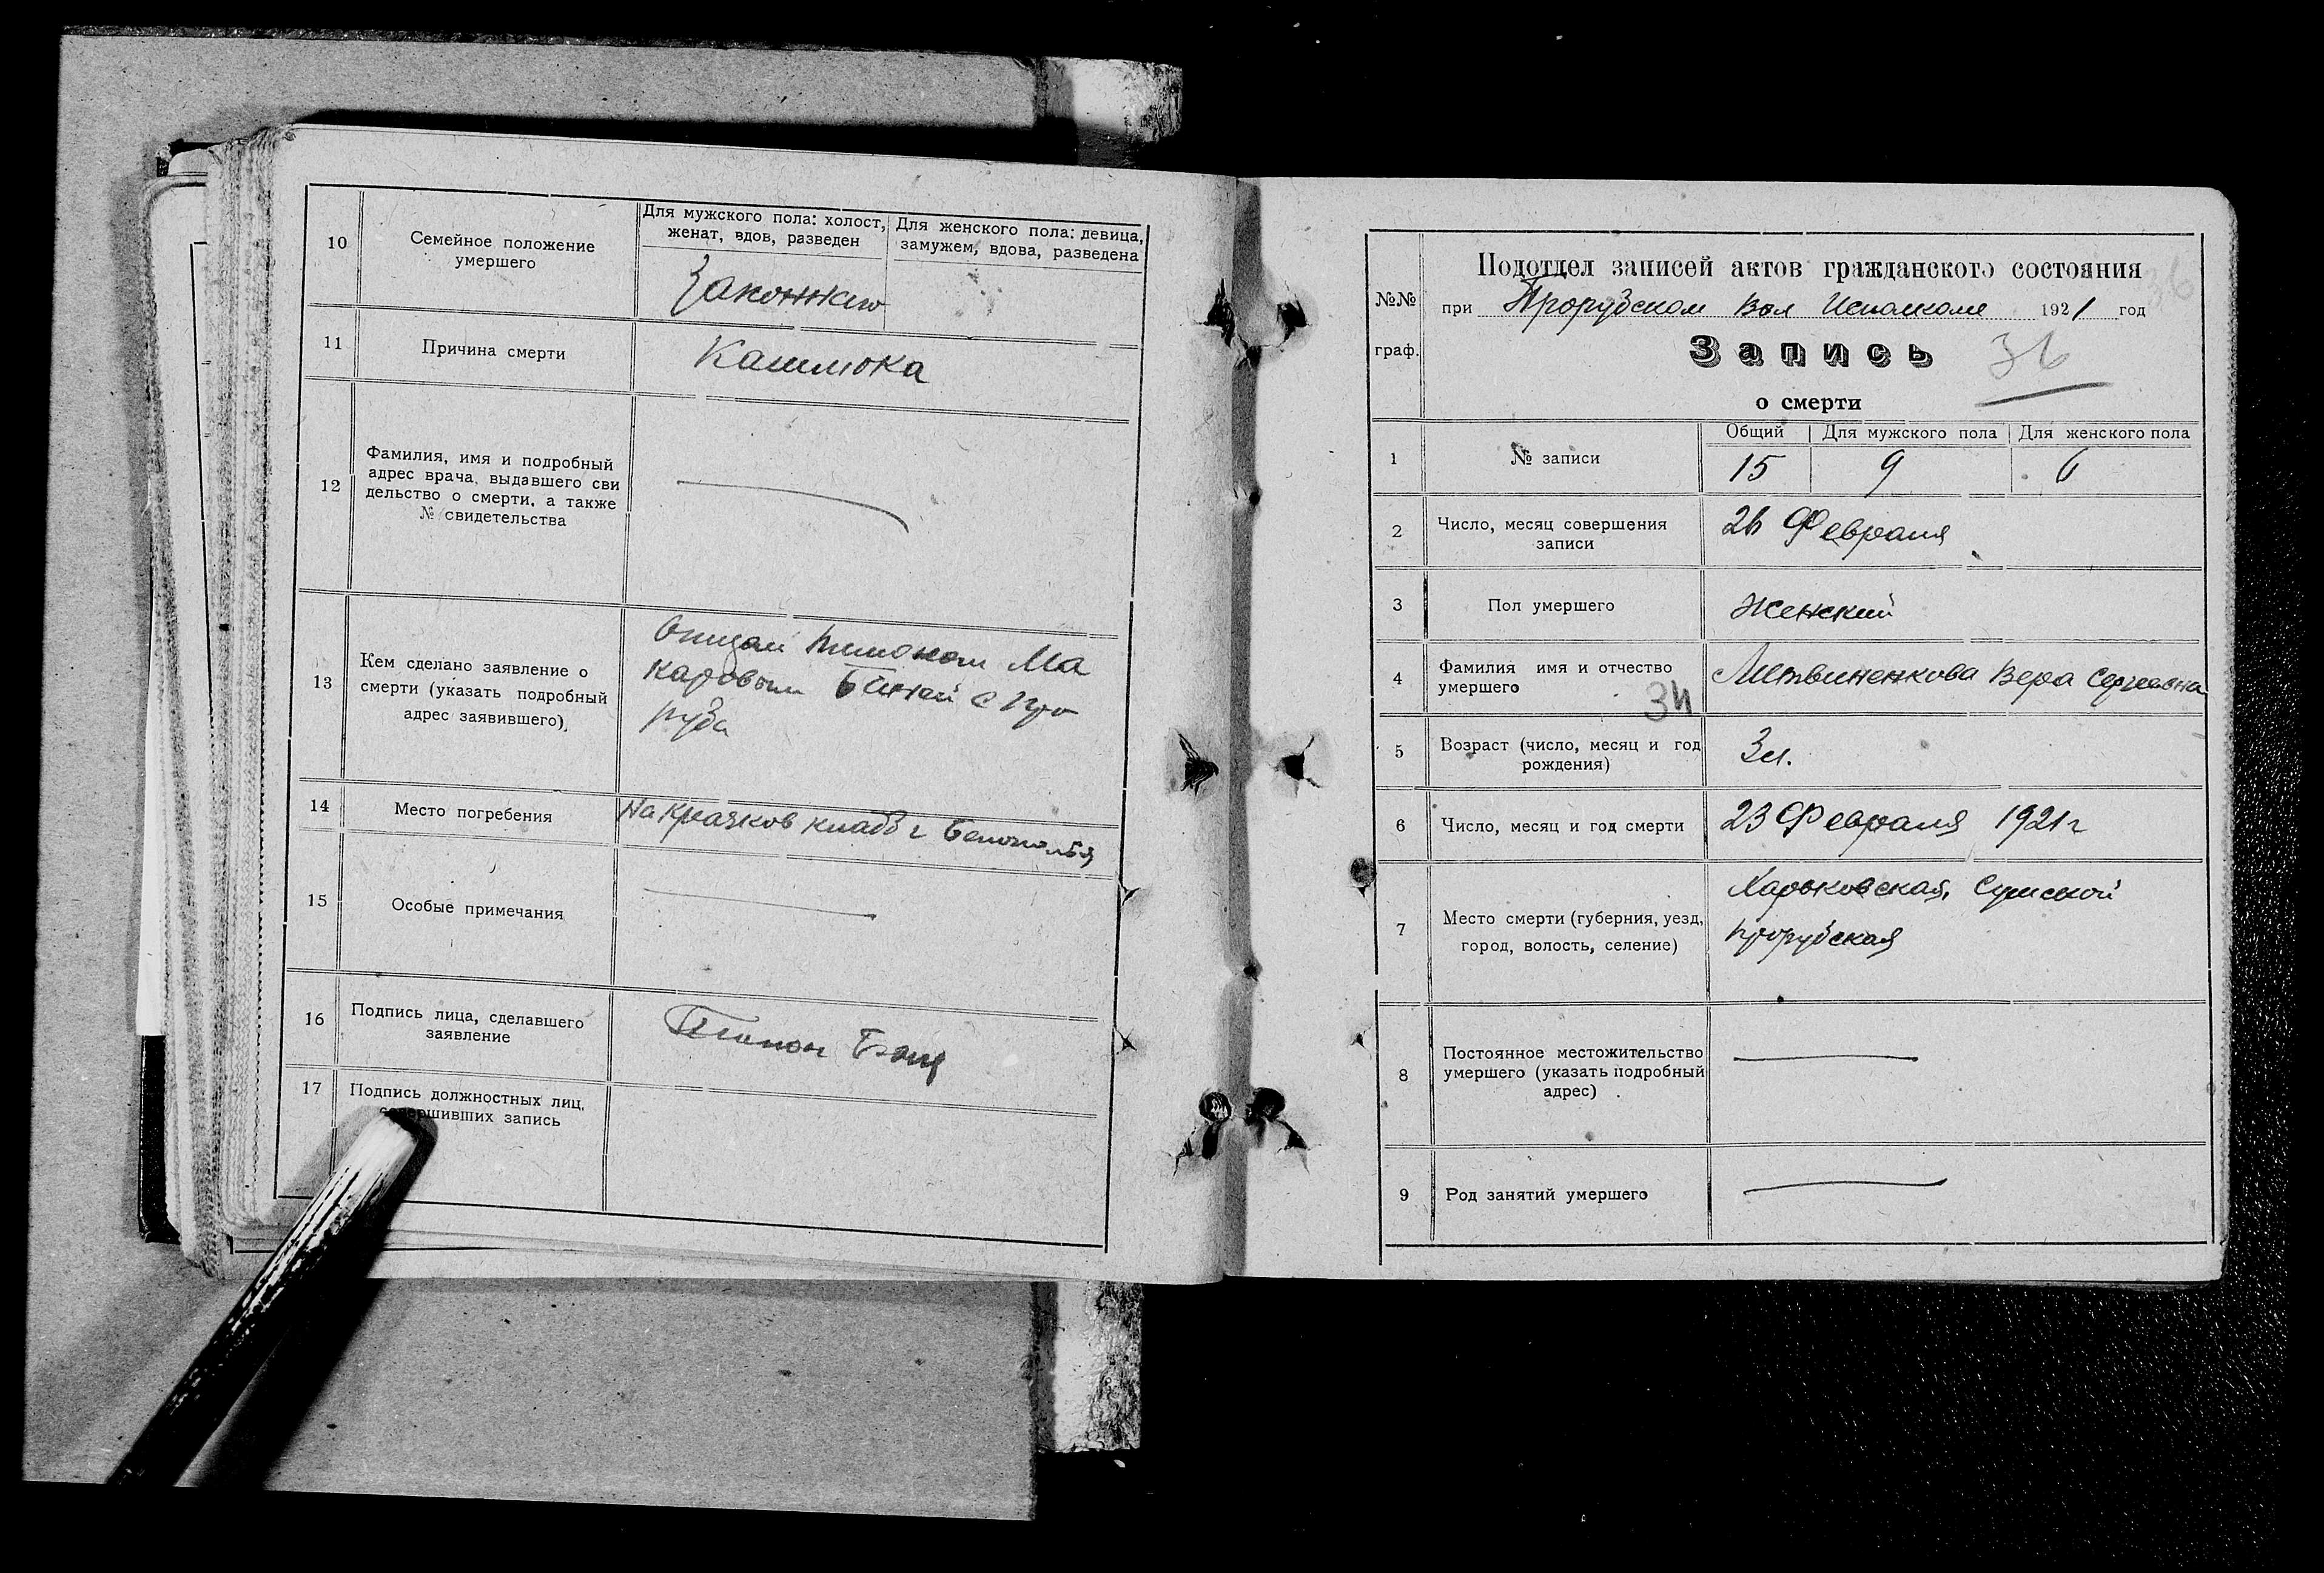 10
Семейное положение
умершего
Для мужского пола: холост,
женат, вдов, разведен
Для женского пола: девица,
замужем, вдова, разведена
11
Причина смерти
Кашлюка
12
Фамилия, имя и подробный
адрес врача, выдавшего сви
дельство о смерти, а также
№ свидетельства
13
Кем сделано заявление о
смерти (указать подробный
адрес заявившего).
Отцом Ма
каровым с Про
руба
14
Место погребения
На кладб г Белополья
15
Особые примечания
16
Подпись лица, сделавшего
заявление
17
Подпись должностных лиц,
совершивших запись
№№
граф.
Подотдел записей актов гражданского состояния
при Прорубском Вол Исполкоме 1921 год
36
Запись
36
о смерти
1
№ записи
Общий
Для мужского пола
Для женского пола
15
9
6
2
Число, месяц совершения
записи
26 Февраля
3
Пол умершего
Женский
4
Фамилия имя и отчество
умершего
34
Литвиненкова Вера Сергеевна
5
Возраст (число, месяц и год
рождения)
3 л.
6
Число, месяц и год смерти
23 Февраля 1921 г
7
Место смерти (губерния, уезд,
город, волость, селение)
Харьковская, Сумской
прорубская
8
Постоянное местожительство
умершего (указать подробный
адрес)
9
Род занятий умершего